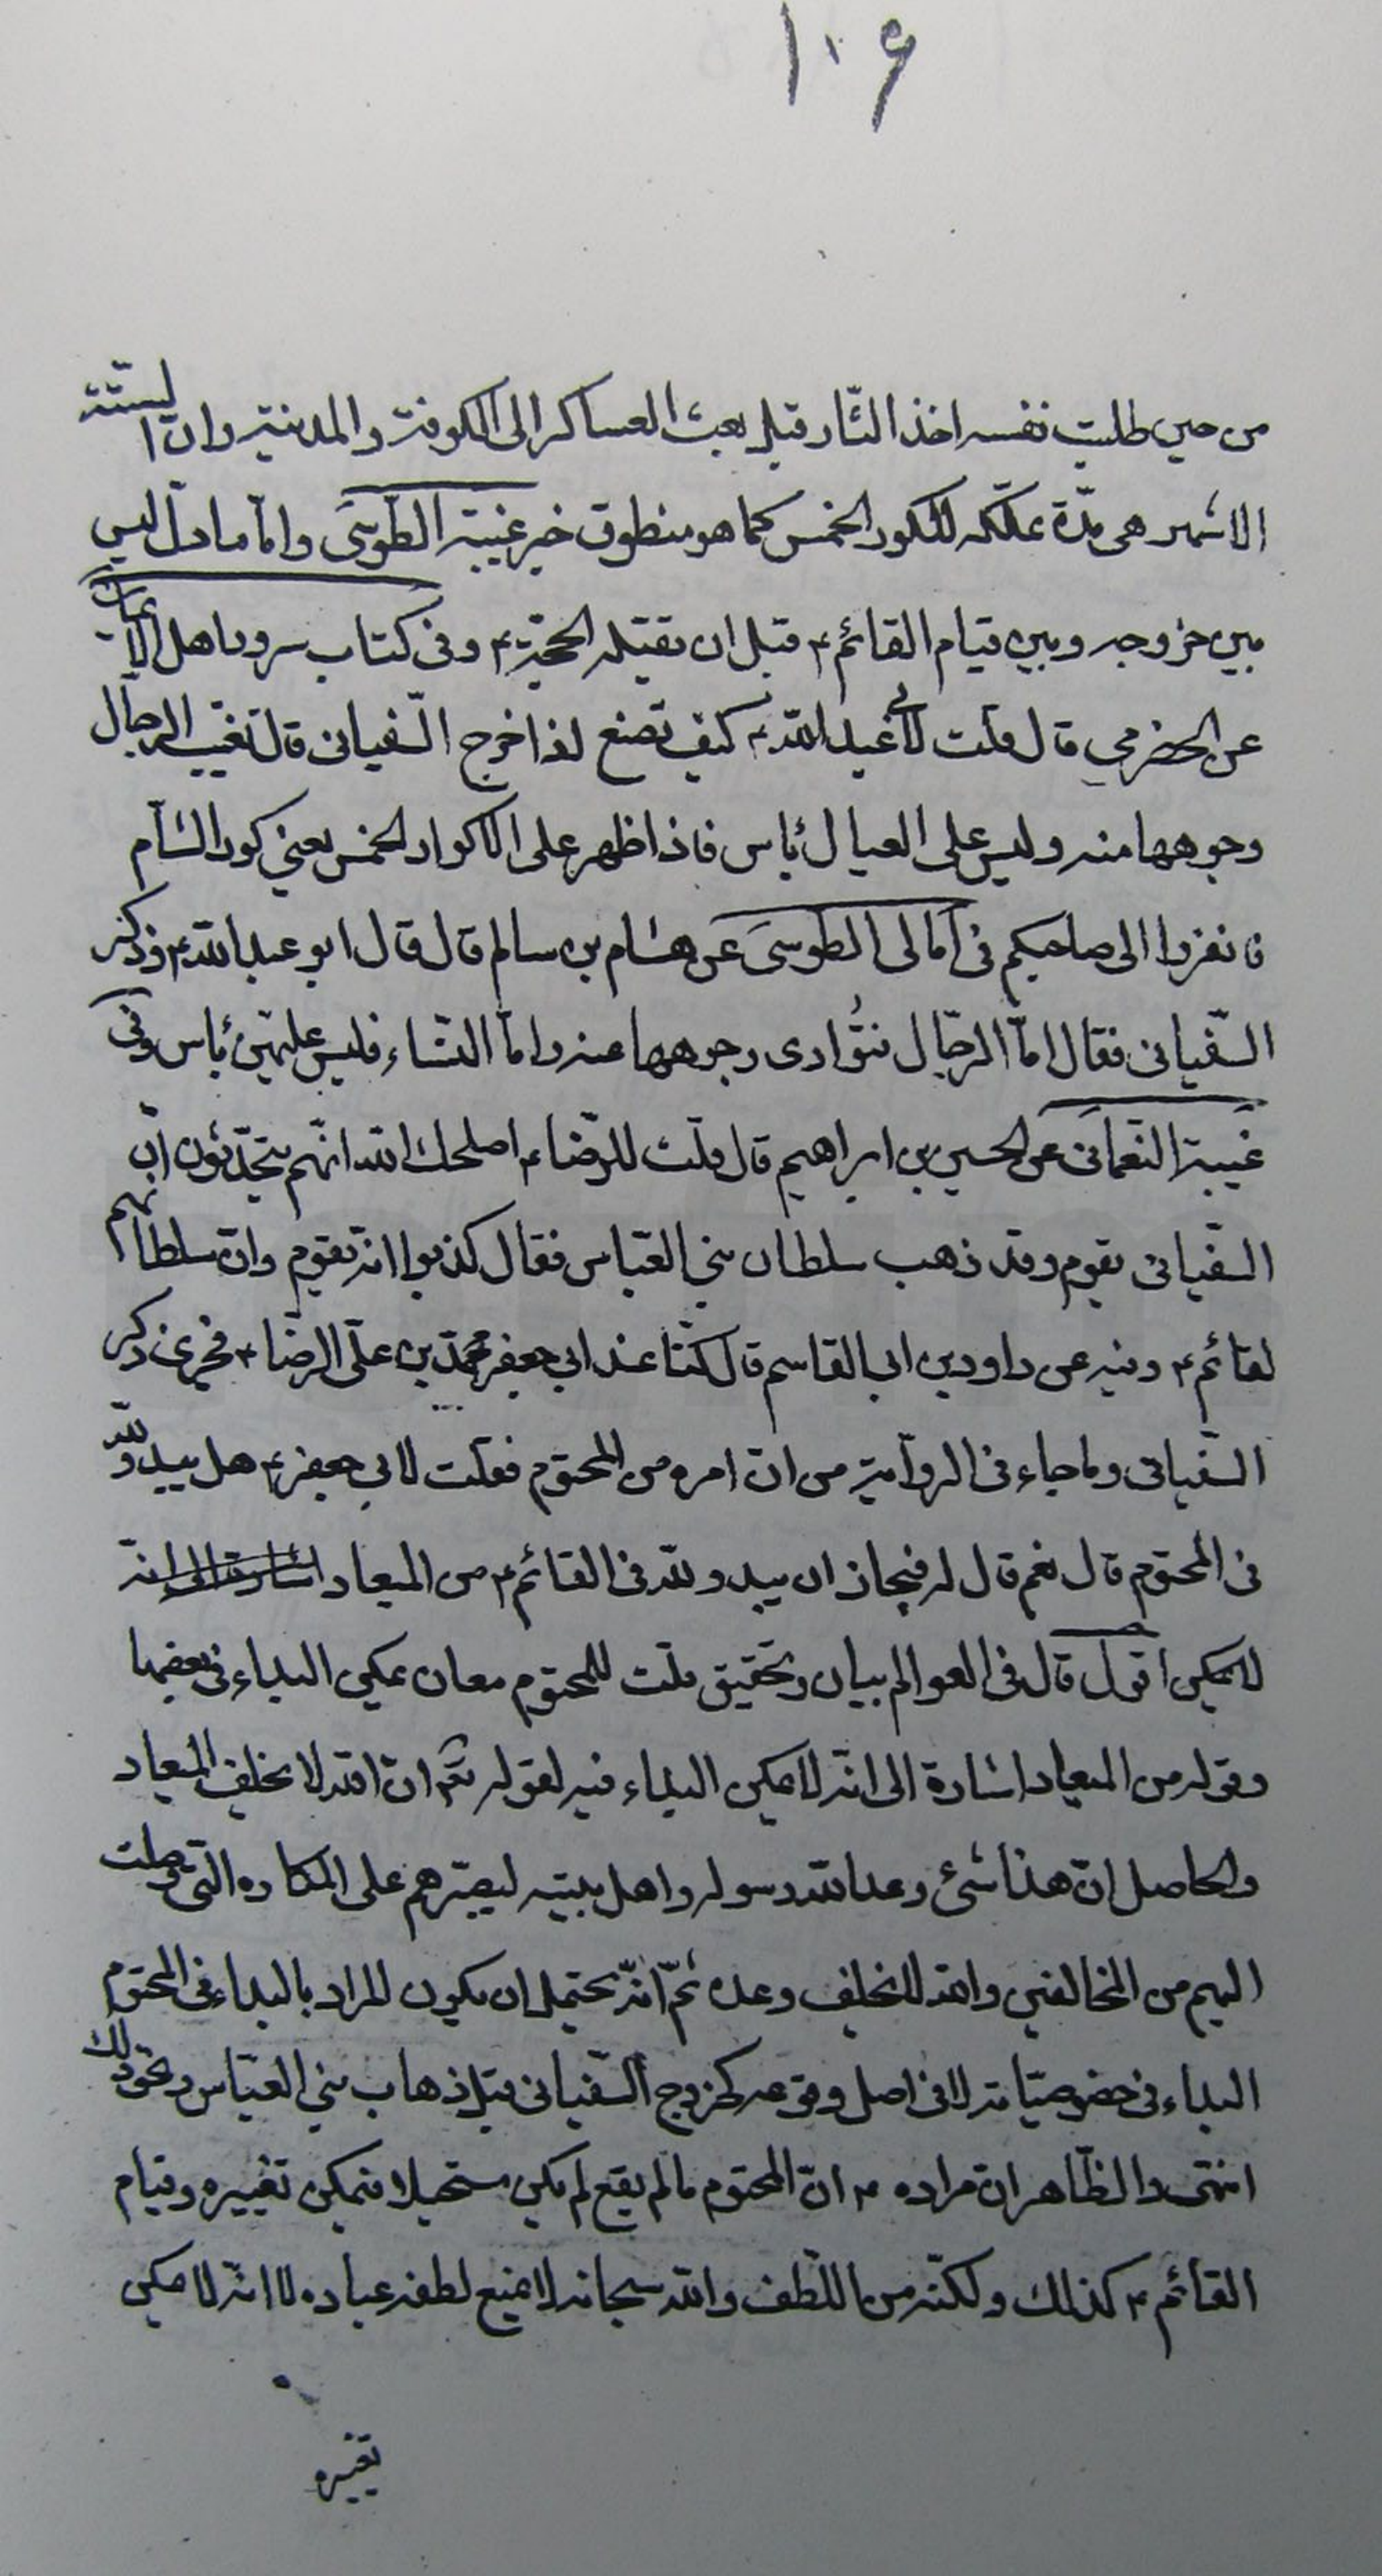 ١٠۶
من حين طلبت نفسه اخذ الثّار قبل بعث العساكر الى الكوفة والمدينة وانّ الستّة
الاشهر هى مدّة تملّكه للكور الخمس كما هو منطوق خبر غيبة الطّوسى وامّا ما دلّ ليس
بين خروجه وبين قيام القائم ٤ قبل ان يقتله الحجّة ٤ وفى كتاب سرور اهل الايمان
عن الحضرمي قال قلت لابي عبد الله ٤ كيف نصنع اذا خرج السّفيانى قال تغيّب الرجال
وجوهها منه وليس على العيال بأس فاذا ظهر على الاكوار الخمس يعني كور الشأم
فانفروا الى صاحبكم فى امالى الطوسى عن هشام بن سالم قال قال ابو عبد الله ٤ وذكر
السّفيانى فقال امّا الرّجال فتُوارى وجوهها عنه وامّا النّساء فليس عليهنّ بأس وفى
غيبة النّعمانى عن الحسين بن ابراهيم قال قلت للرّضا ٤ اصلحك الله انّهم يتحدّثون انّ
السّفيانى يقوم وقد ذهب سلطان بني العبّاس فقال كذبوا انّه يقوم وانّ سلطانهم
لقائم ٤ وفيه عن داود بن ابي القاسم قال كنّا عند ابي جعفر محمّد بن علّى الرضّا ٤ فجرى ذكر
السّفيانى وما جاء فى الرواية من انّ امره من المحتوم فقلت لابي جعفر ٤ هل يبدو لله
فى المحتوم قال نعم قال له فيجاز ان يبدو لله فى القائم ٤ من الميعاد اشارة الى انّه
لا يمكن اقول قال فى العوالم بيان وتحقيق قلت للمحتوم معان يمكن البداء فى بعضها
وقوله من الميعاد اشارة الى انّه لا يمكن البداء فيه لقوله تعم انّ الله لا يخلف الميعاد
والحاصل انّ هذا شئ وعد الله رسوله واهل بيته ليصبّرهم على المكاره التى وصلت
اليهم من المخالفين والله لا يخلف وعده ثمّ انّه يحتمل ان يكون المراد بالبداء فى المحتوم
البداء فى خصوصيّاته لا فى اصل وقوعه كخروج السّفيانى قبل ذهاب بني العبّاس ونحو ذلك
انتهى والظّاهر انّ مراده ٤ انّ المحتوم ما لم يقع لم يكن مستحيلا فيمكن تغييره وقيام
القائم ٤ كذلك ولكنّه من اللّطف والله سبحانه لا يمنع لطفه عباده لا انّه لا يمكن
تغييره